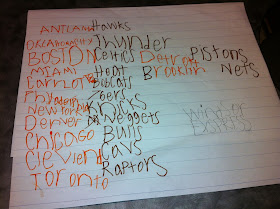 ANTLANTA Hawks
OKLAHOMACITY Thunder
BOSTON Celtics Detroit Pistons
MIAMI Heat Brooklin Nets
Bobcats
76ers
New York Knicks
Denver Nuggets
Chicago Bulls
Clevlend Cavs
Toronto Raptors